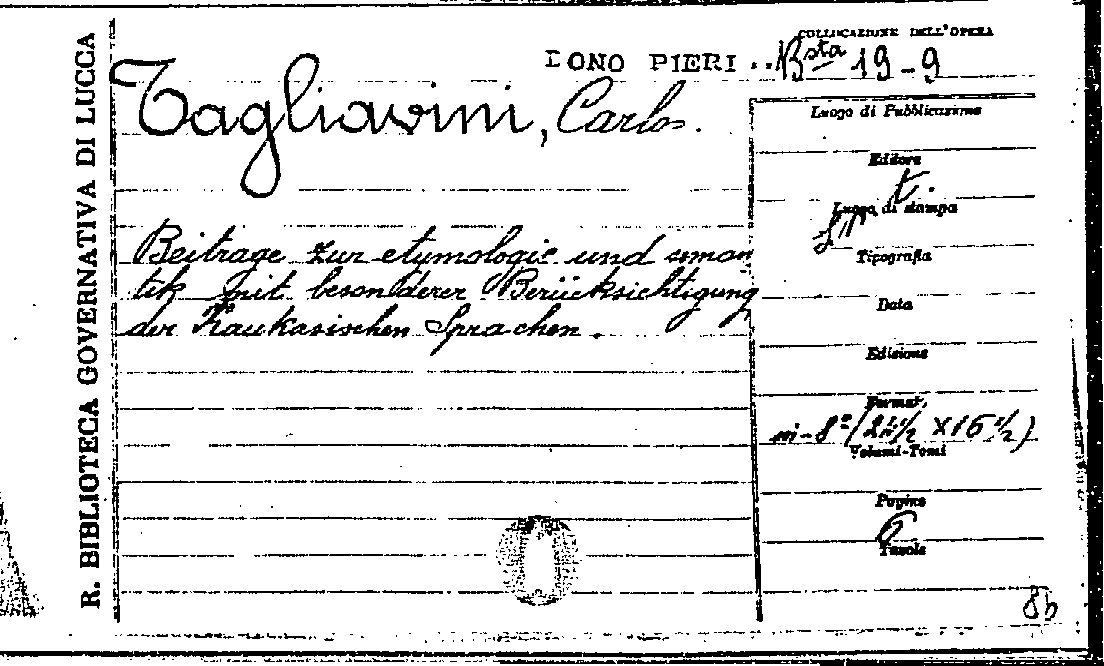 R. BIBLIOTECA GOVERNATIVA DI LUCCA
COLLOCAZIONE DELL'OPERA
DONO PIERI .. Bsta 19-9
Tagliavini, Carlo.
Beitrage zur etymologie und seman
tik mit besonderer Berücksichtigung
der Kaukasischen Sprachen.
Luogo di Pubblicazione
Editore
Luogo di stampa
Tipografia
Data
Edizione
Formato
in-8° (24 1/2 X 16 1/2)
Volumi-Tomi
Pagine
6
Tavole
8b